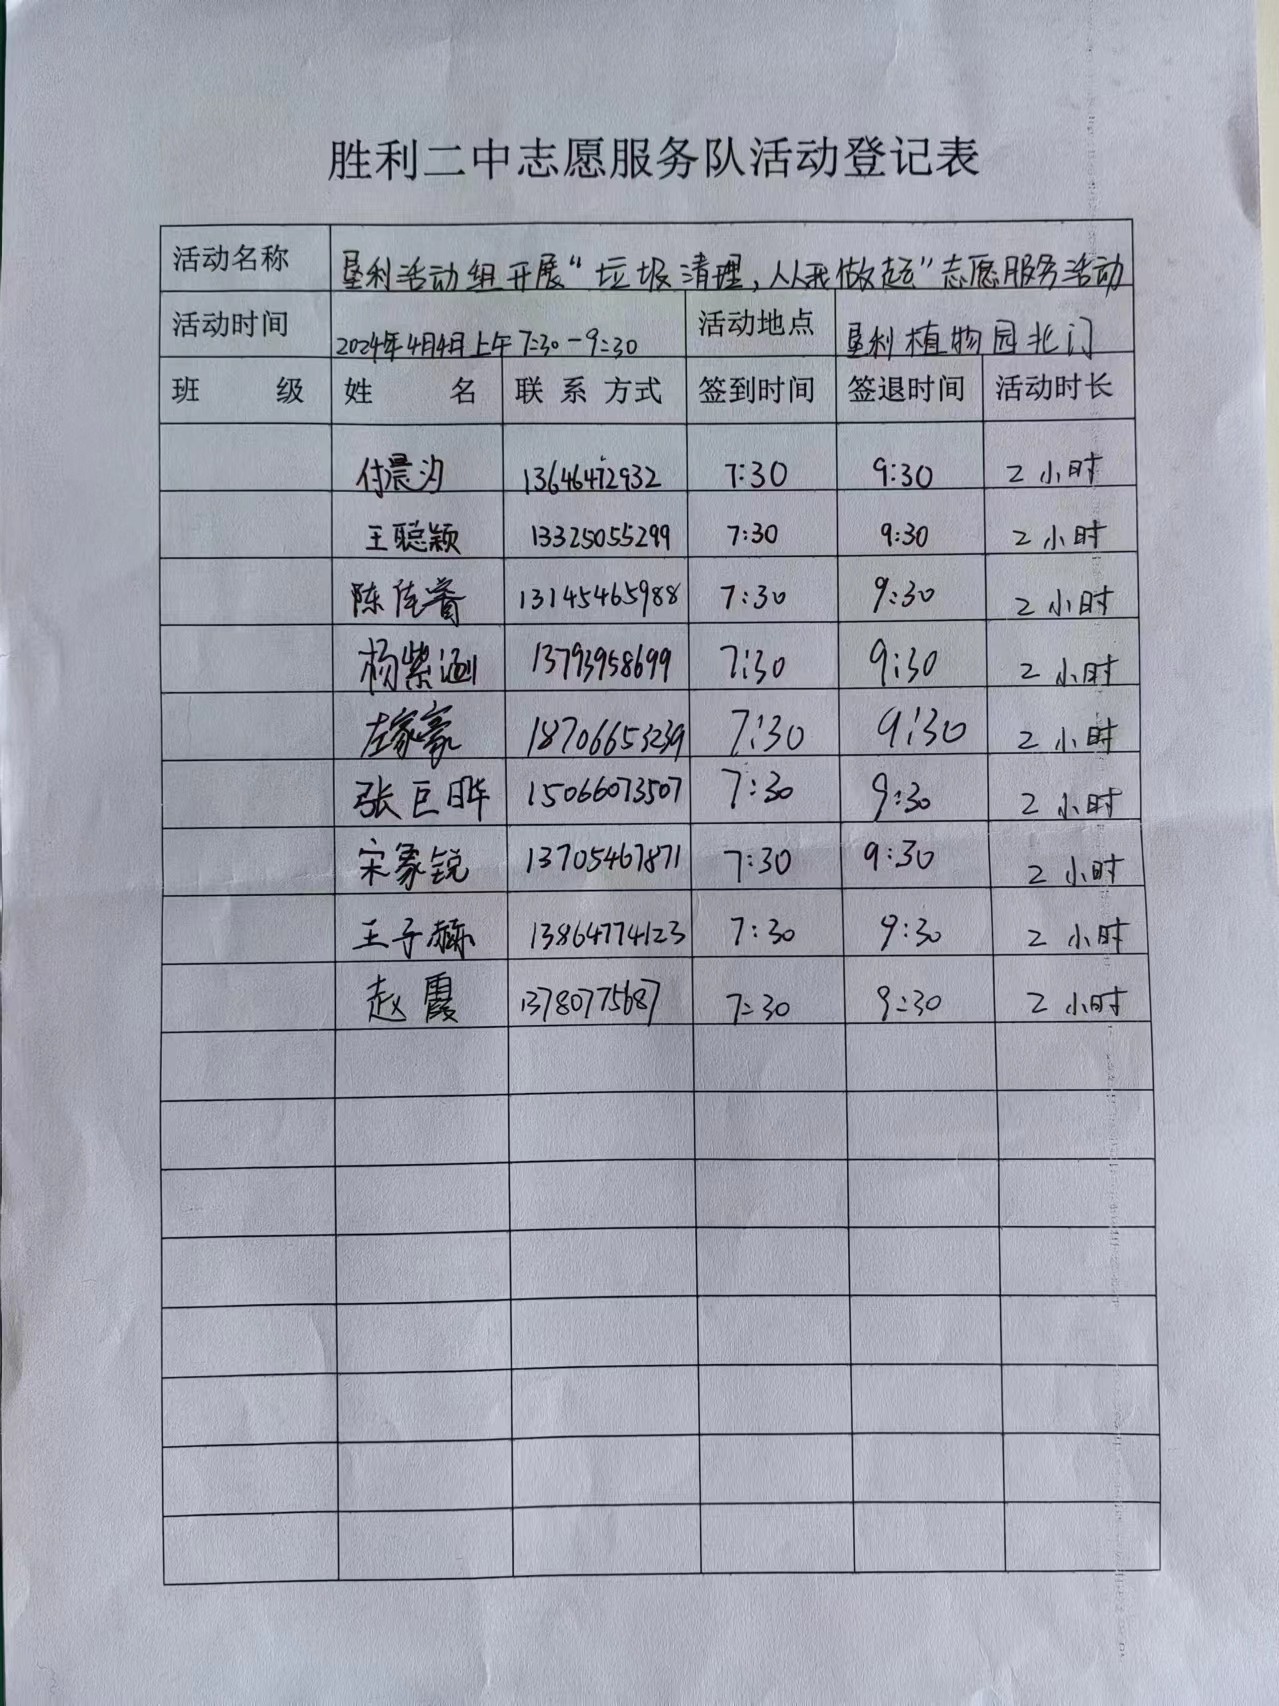 胜利二中志愿服务队活动登记表
活动名称 垦利活动组开展“垃圾清理,从我做起”志愿服务活动
活动时间 2024年4月4日上午7:30-9:30 活动地点 垦利植物园北门
班 级 姓 名 联系方式 签到时间 签退时间 活动时长
付晨汐 13646472932 7:30 9:30 2小时
王聪颖 13325055299 7:30 9:30 2小时
陈佳睿 13145465988 7:30 9:30 2小时
杨紫涵 13793958699 7:30 9:30 2小时
左家豪 18706653239 7:30 9:30 2小时
张巨晔 15066073507 7:30 9:30 2小时
宋家锐 13705467871 7:30 9:30 2小时
王子赫 13864774123 7:30 9:30 2小时
赵霞 13780775687 7:30 9:30 2小时